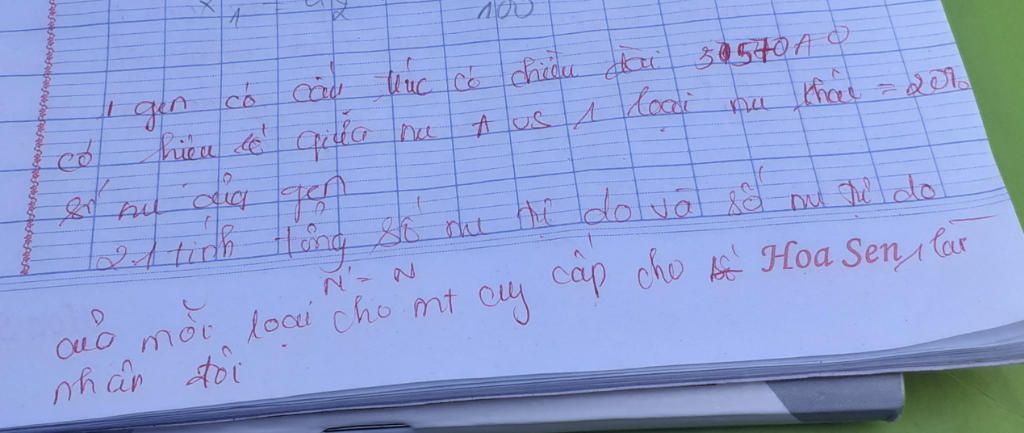 1 gen có cấu trúc có chiều dài
có hiệu số giữa nu A vs 1 loại nu khác = 20%
số nu của gen
2. tính tổng số nu tự do và số nu tự do
N = N
của mỗi loại cho mt cung cấp cho Hoa Sen 1 lần
nhân đôi